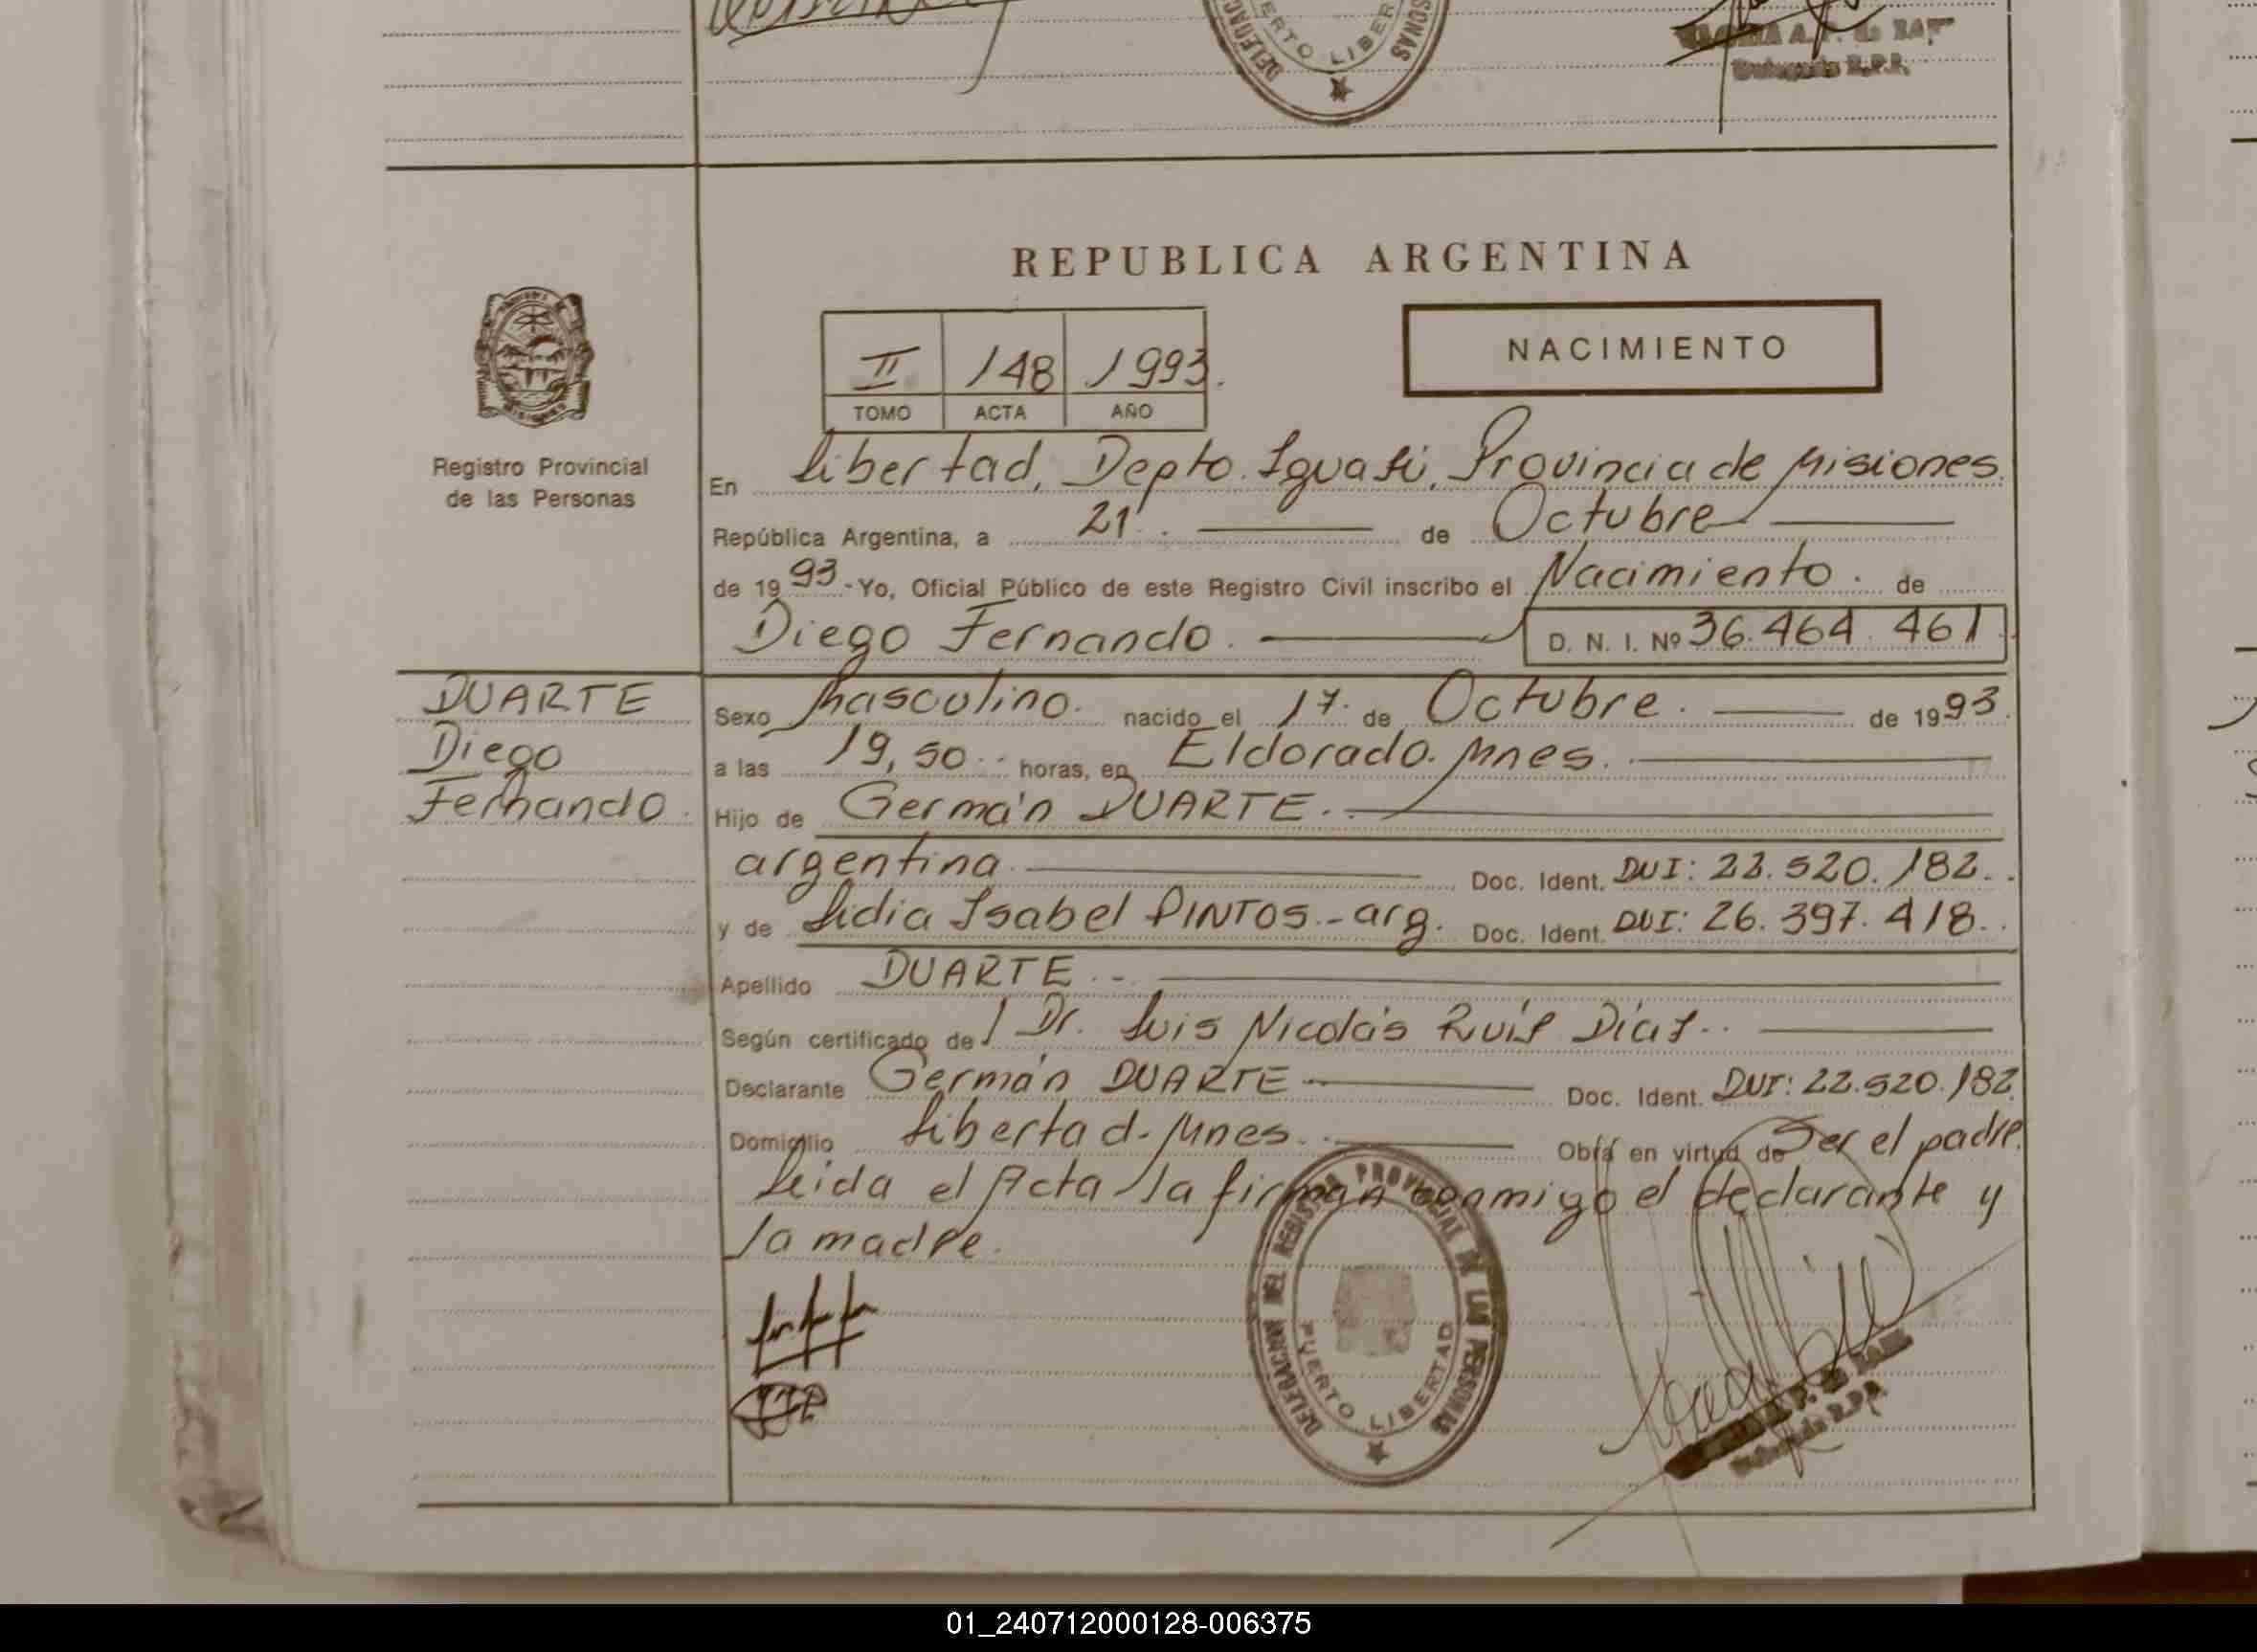 PUERTO LIBER
Delegada R.P.P.
REPUBLICA ARGENTINA
II 148 1993.
TOMO ACTA AÑO
NACIMIENTO
Registro Provincial
de las Personas
En Libertad, Depto. Iguasú, Provincia de Misiones.
República Argentina, a 21. de Octubre
de 1993.- Yo, Oficial Público de este Registro Civil inscribo el Nacimiento. de
Diego Fernando. D. N. I. Nº 36.464.461
DUARTE
Diego
Fernando.
Sexo Masculino. nacido el 17. de Octubre. de 1993.
a las 19,50 horas, en Eldorado. Mnes.
Hijo de Germán DUARTE.
argentina Doc. Ident. DUI: 22.520.182.
y de Lidia Isabel PINTOS.- arg. Doc. Ident. DUI: 26.397.418.
Apellido DUARTE.-
Según certificado de Dr. Luis Nicolás Ruíz Díaz.
Declarante Germán DUARTE Doc. Ident. DUI: 22.520.182.
Domicilio Libertad- Mnes. Obra en virtud de Ser el padre.
Leida el Acta la firman conmigo el declarante y
la madre.
DELEGACION DEL REGISTRO PROVINCIAL DE LAS PERSONAS
PUERTO LIBERTAD
Delegada R.P.P.
01_240712000128-006375